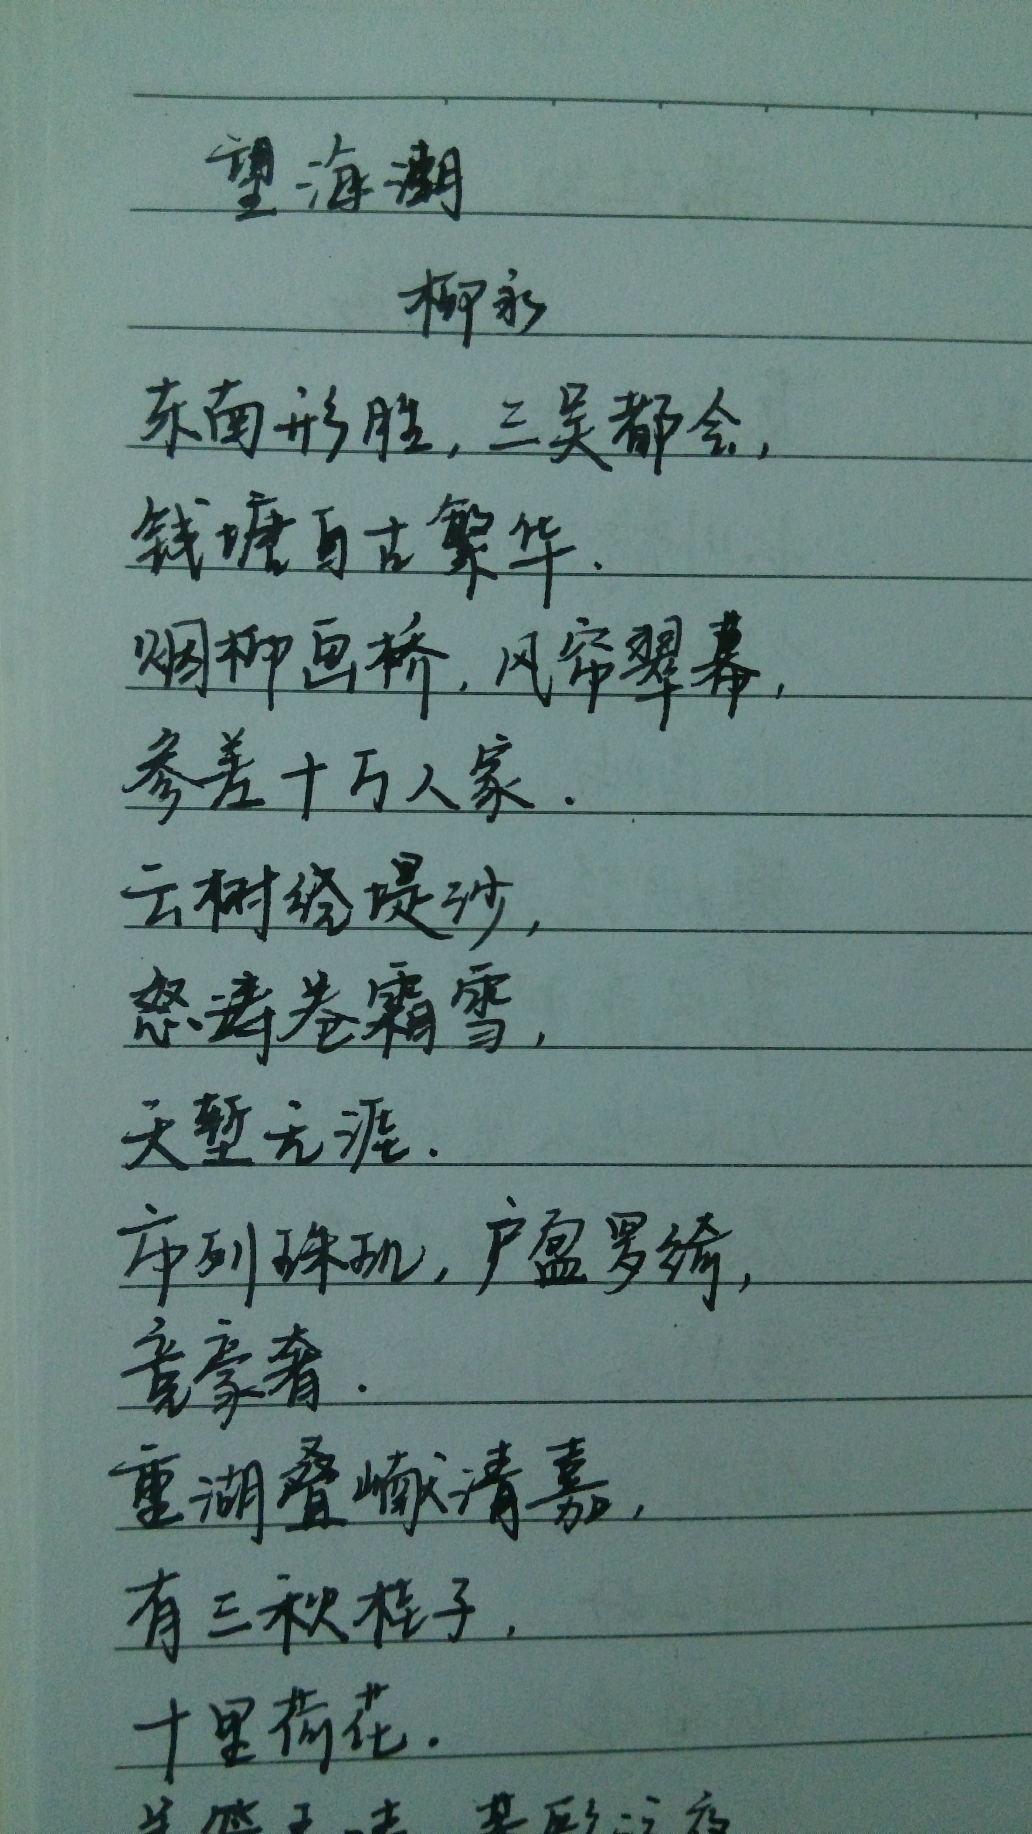 望海潮
柳永
东南形胜,三吴都会,
钱塘自古繁华.
烟柳画桥,风帘翠幕,
参差十万人家.
云树绕堤沙,
怒涛卷霜雪,
天堑无涯.
市列珠玑,户盈罗绮,
竞豪奢.
重湖叠巘清嘉,
有三秋桂子,
十里荷花.